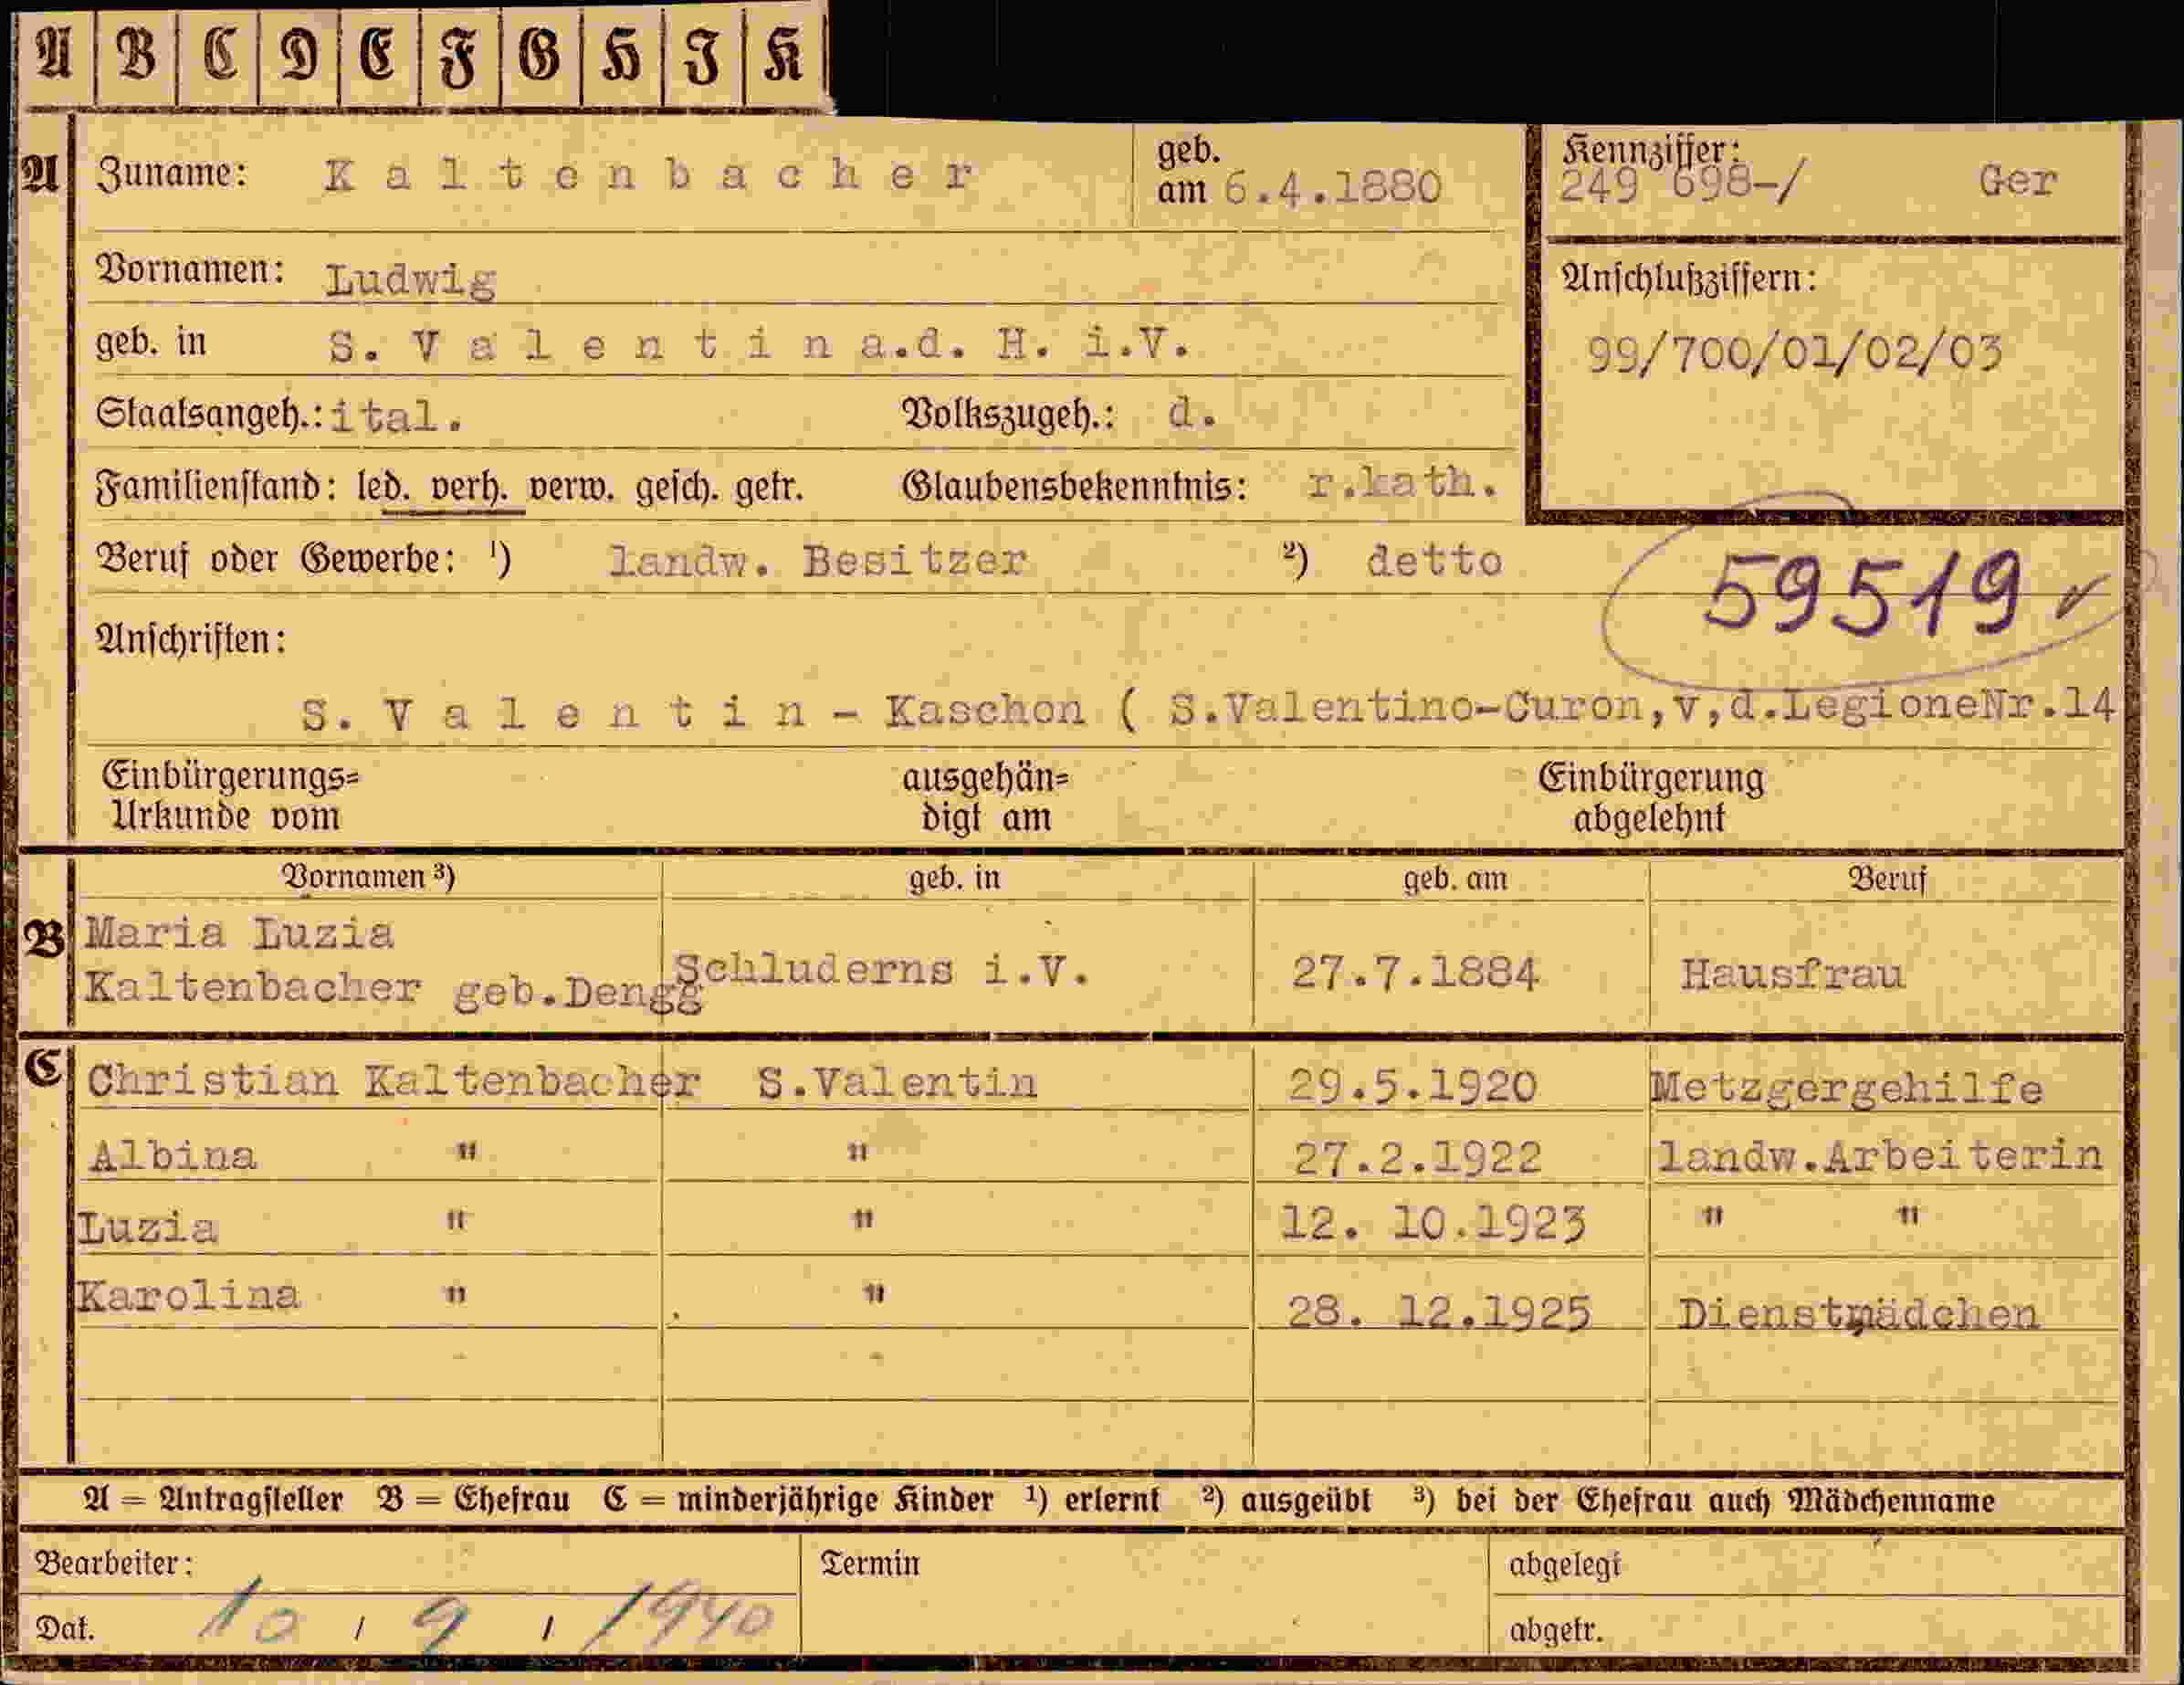 A B C D E F G H I K
A Zuname: Kaltenbacher geb. am 6.4.1880 Kennziffer: 249 698-/ Ger
Vornamen: Ludwig
Anschlußziffern:
geb. in S. Valentin a.d. H. i.V.
99/700/01/02/03
Staatsangeh.: ital. Volkszugeh.: d.
Familienstand: led. verh. verw. gesch. getr. Glaubensbekenntnis: r.kath.
Beruf oder Gewerbe: ¹) landw. Besitzer ²) detto
59519 ✓
Anschriften:
S. Valentin - Kaschon ( S.Valentino-Curon,v,d.LegioneNr.14
Einbürgerungs= ausgehän= Einbürgerung
Urkunde vom digt am abgelehnt
Vornamen ³) geb. in geb. am Beruf
B Maria Luzia
Kaltenbacher geb.Dengg Schluderns i.V. 27.7.1884 Hausfrau
C Christian Kaltenbacher S.Valentin 29.5.1920 Metzgergehilfe
Albina " " 27.2.1922 landw.Arbeiterin
Luzia " " 12. 10.1923 " "
Karolina " " 28. 12.1925 Dienstmädchen
A = Antragsteller B = Ehefrau C = minderjährige Kinder ¹) erlernt ²) ausgeübt ³) bei der Ehefrau auch Mädchenname
Bearbeiter: Termin abgelegt
Dat. 10 / 9 / 1940 abgetr.